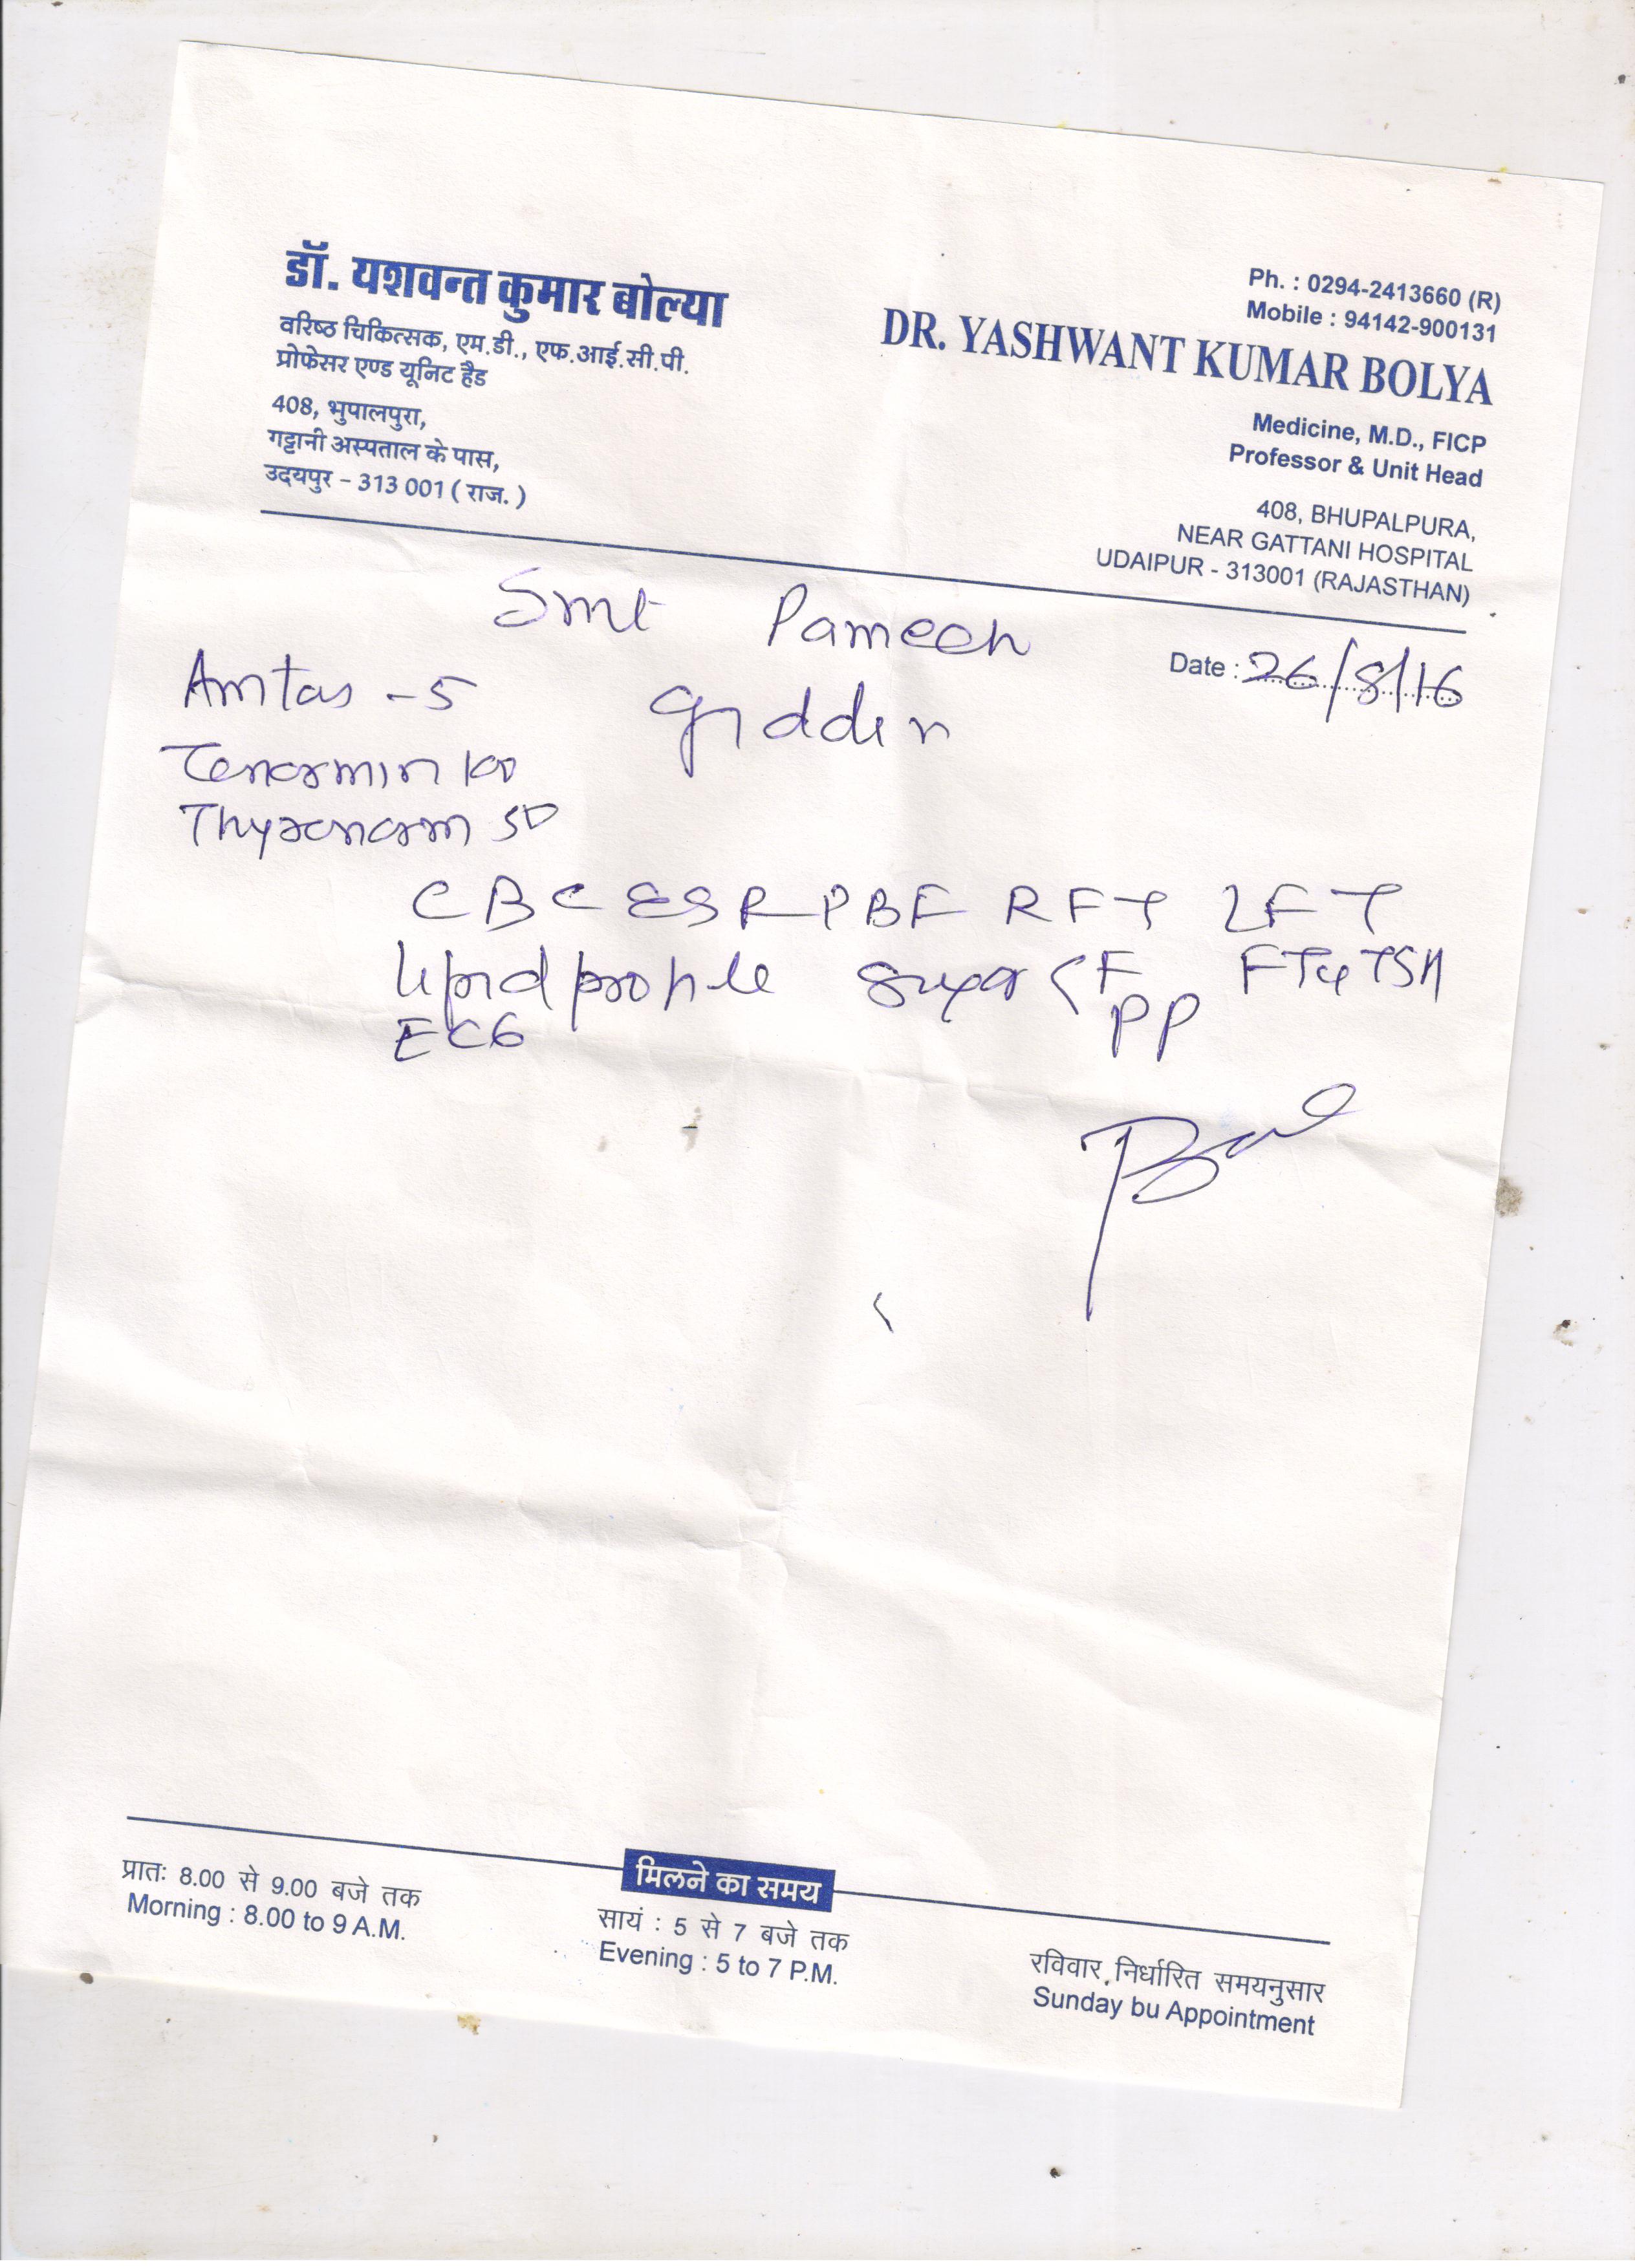 डॉ. यशवन्त कुमार बोल्या
वरिष्ठ चिकित्सक, एम.डी., एफ.आई.सी.पी.
प्रोफेसर एण्ड यूनिट हैड
408, भुपालपुरा,
गट्टानी अस्पताल के पास,
उदयपुर - 313 001 ( राज. )
Ph. : 0294-2413660 (R)
Mobile : 94142-900131
DR. YASHWANT KUMAR BOLYA
Medicine, M.D., FICP
Professor & Unit Head
408, BHUPALPURA,
NEAR GATTANI HOSPITAL
UDAIPUR - 313001 (RAJASTHAN)
Smt Pameen
Date : 26/8/16
Amtas - 5
Tenormin 100
Thyronorm 50
CBC ESR PBF RFT LFT
lipid profile sugar < F FT4 TSH
PP
ECG
मिलने का समय
प्रातः 8.00 से 9.00 बजे तक
Morning : 8.00 to 9 A.M.
सायं : 5 से 7 बजे तक
Evening : 5 to 7 P.M.
रविवार निर्धारित समयनुसार
Sunday bu Appointment